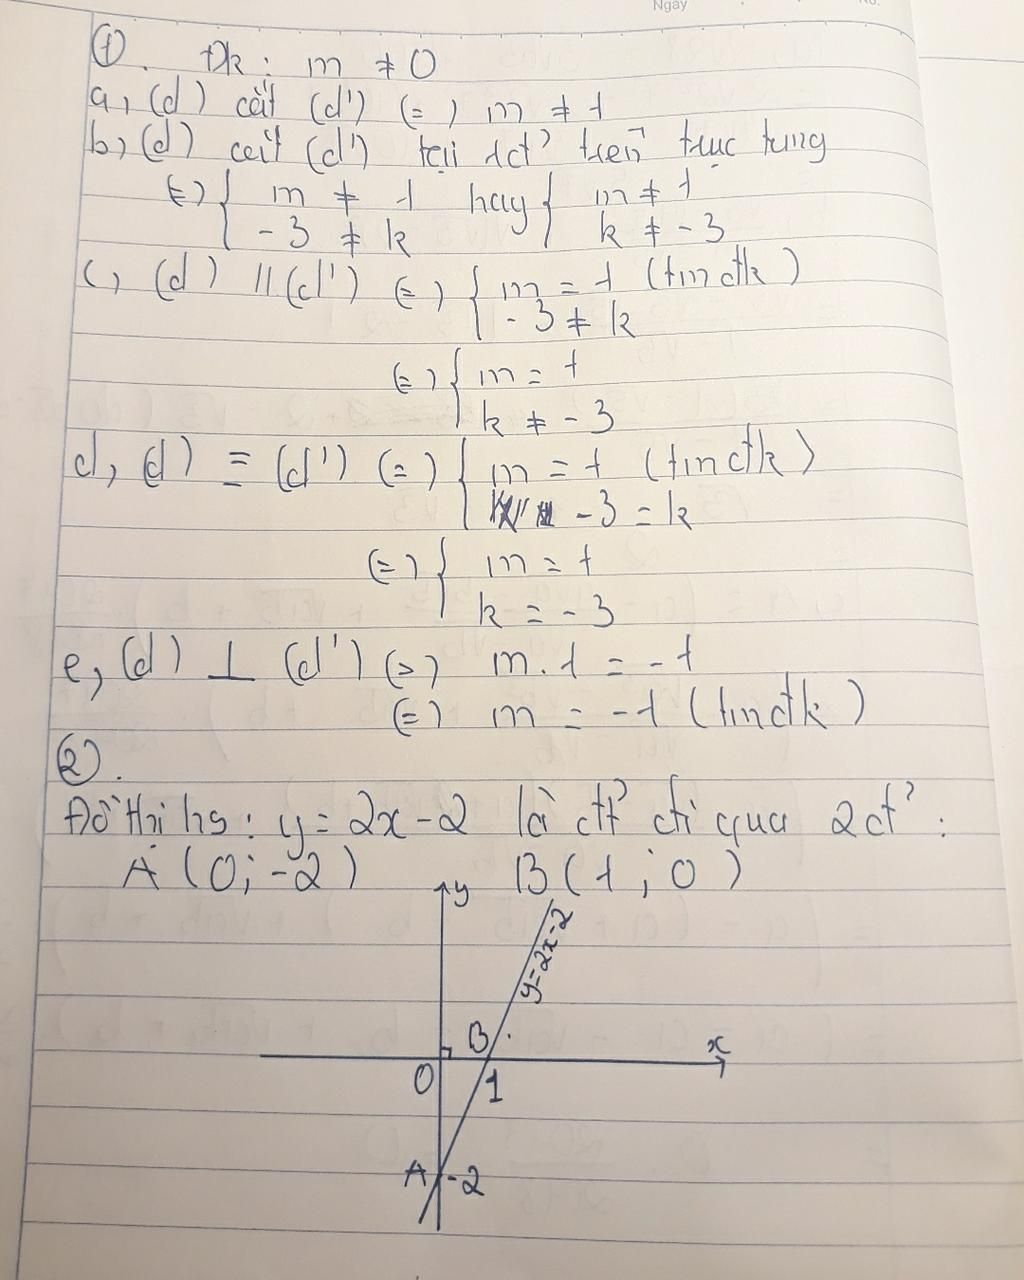 Ngay
No.
①. Đk: m ≠ 0
a, (d) cắt (d') (=) m ≠ 1
b, (d) cắt (d') tại 1đ' trên trục tung
(=) { m ≠ 1 hay { m ≠ 1
-3 ≠ k k ≠ -3
c, (d) // (d') (=) { m = 1 (tmđk)
-3 ≠ k
(=) { m = 1
k ≠ -3
d, (d) ≡ (d') (=) { m = 1 (tmđk)
-3 = k
(=) { m = 1
k = -3
e, (d) ⊥ (d') (=) m . 1 = -1
(=) m = -1 (tmđk)
②.
Đồ thị hs: y = 2x - 2 là đt' đi qua 2đ' :
A (0; -2) B (1; 0)
y
y=2x-2
B
x
O
1
A
-2